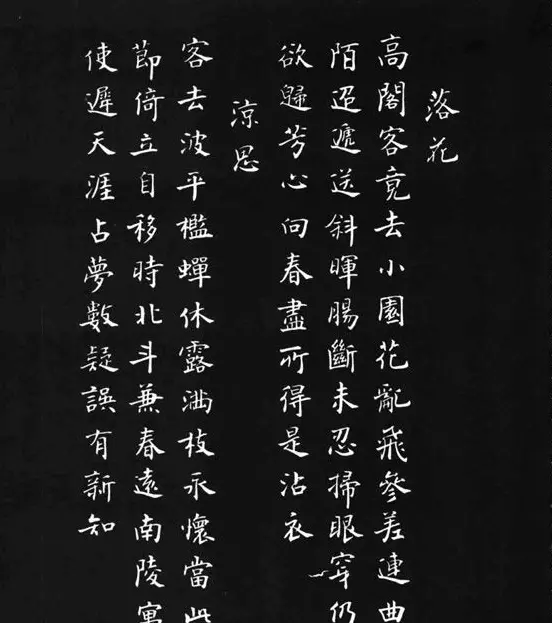 落花
高閣客竟去小園花亂飛參差連曲
陌迢遞送斜暉腸斷未忍掃眼穿仍
欲歸芳心向春盡所得是沾衣
涼思
客去波平檻蟬休露滿枝永懷當此
節倚立自移時北斗兼春遠南陵寓
使遲天涯占夢數疑誤有新知